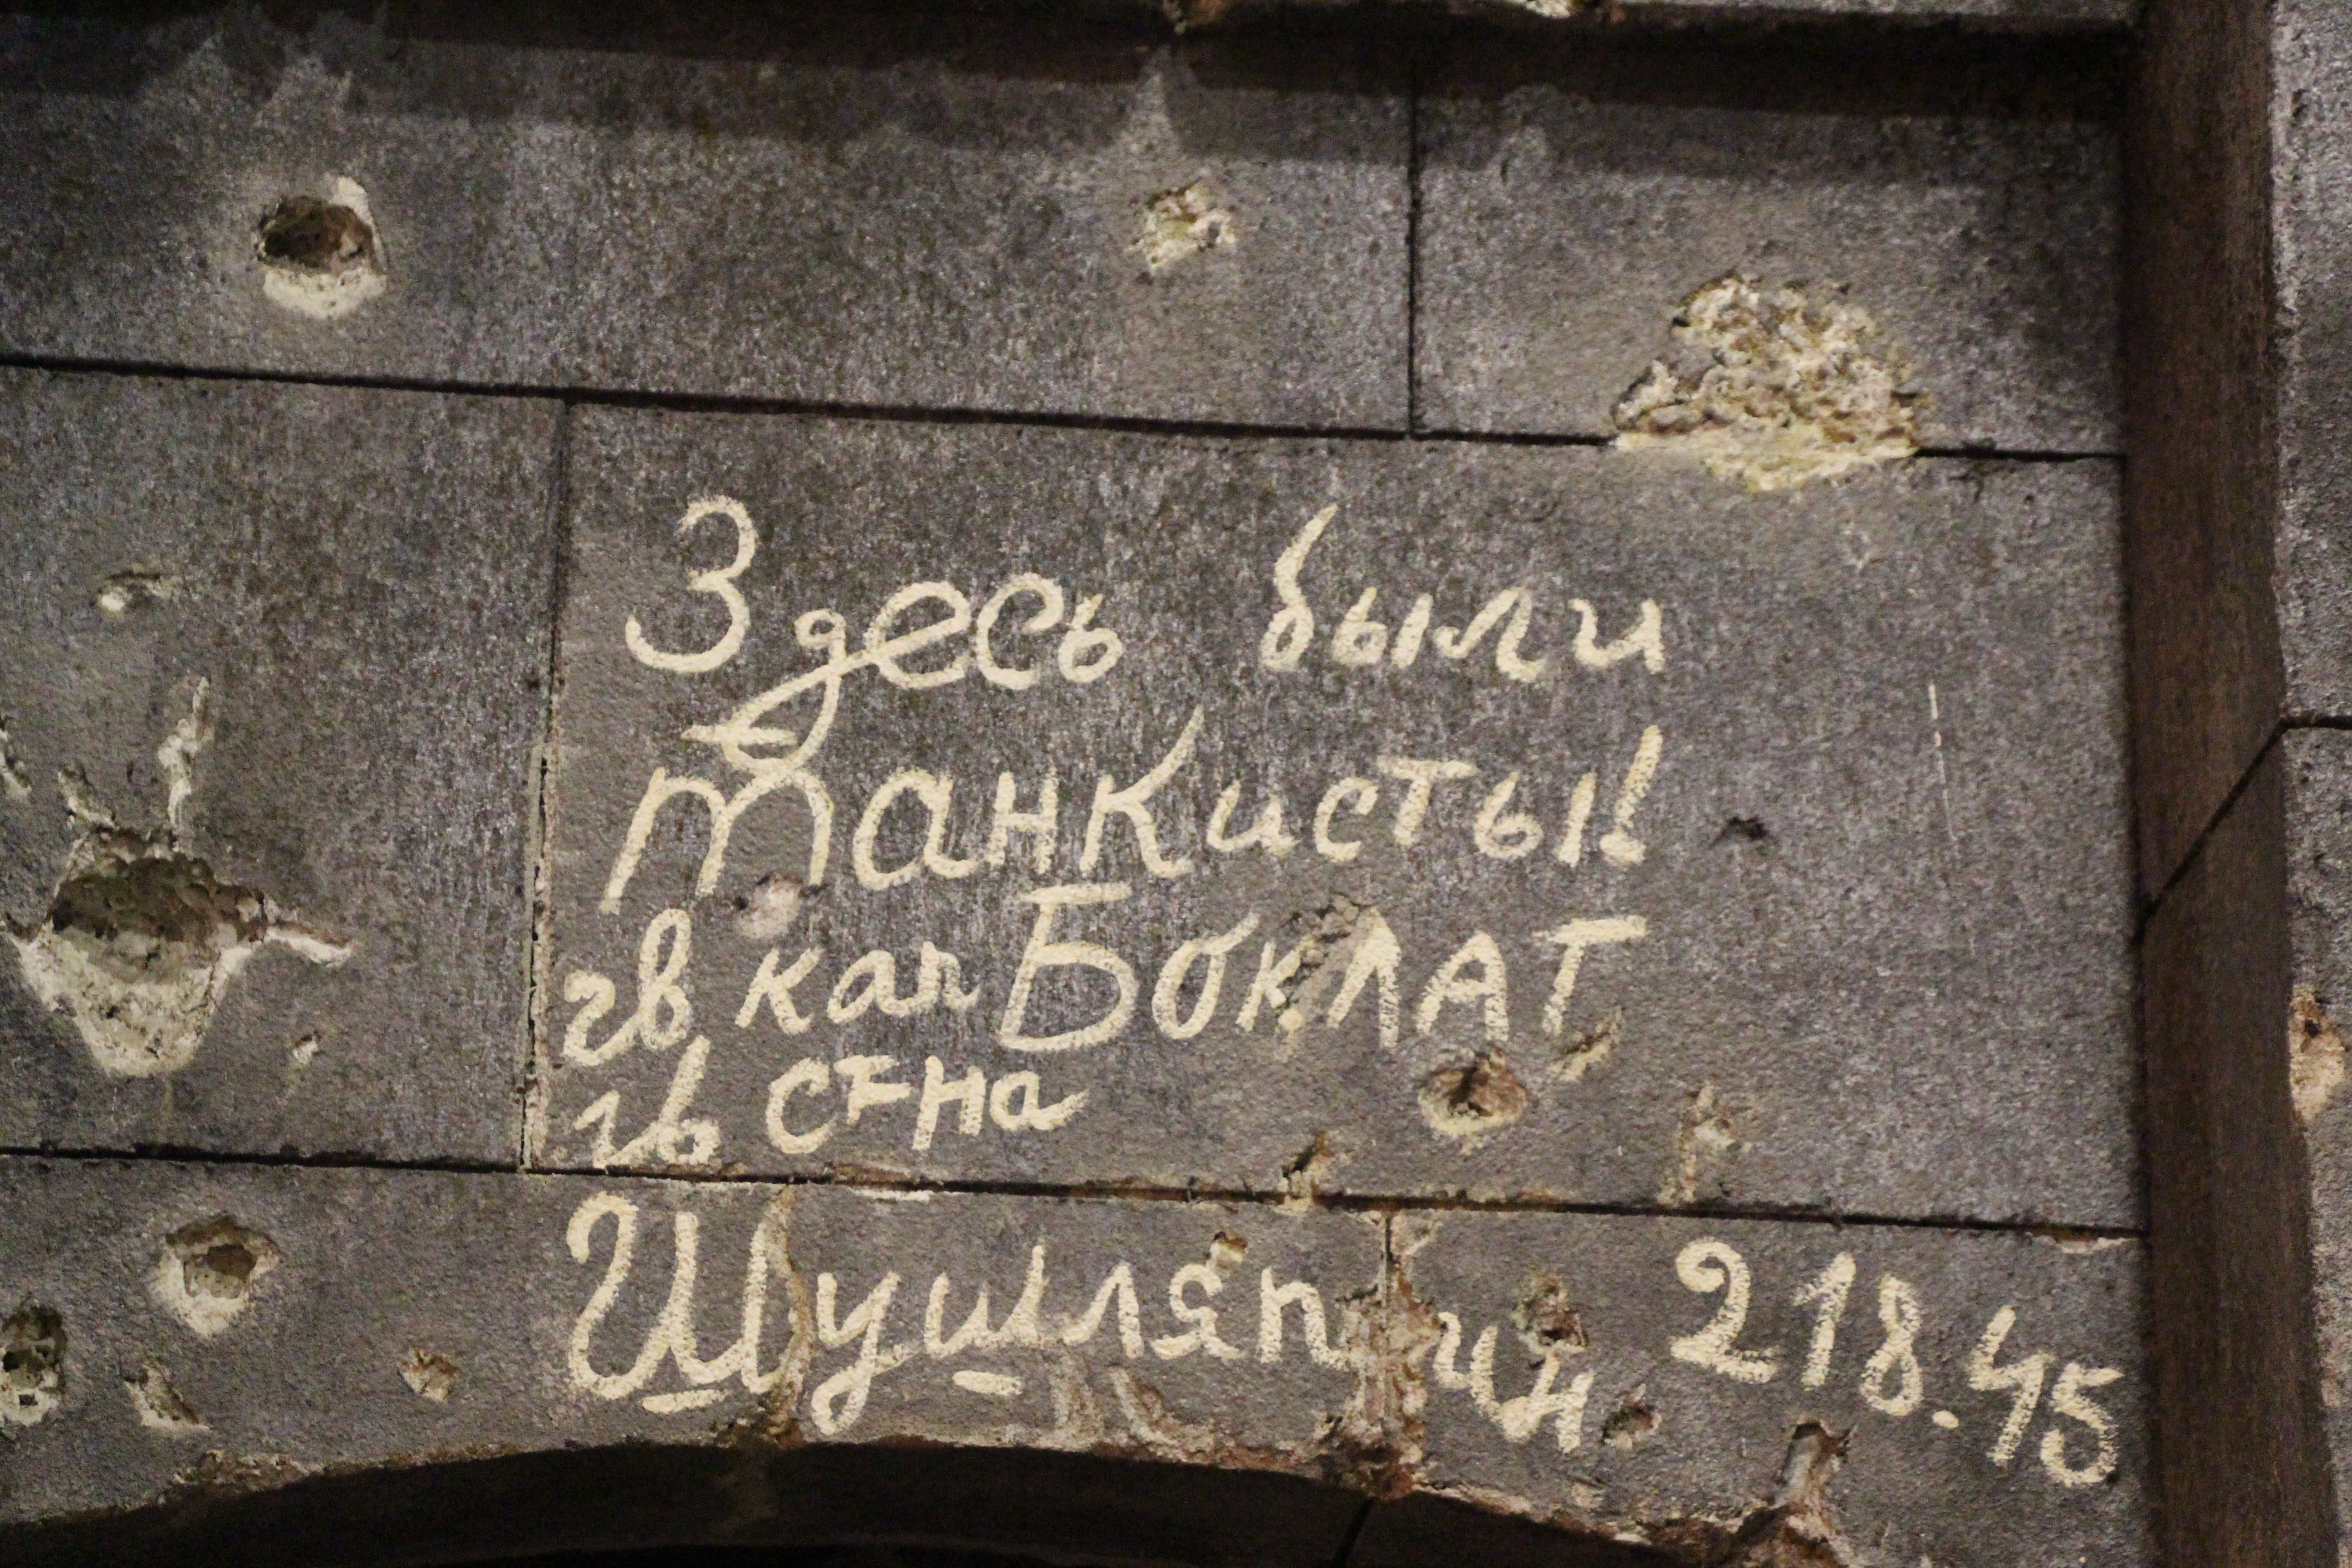 Здесь были
танкисты!
гв кап БОКЛАТ
гв ст-на
Шушляпин 218.45